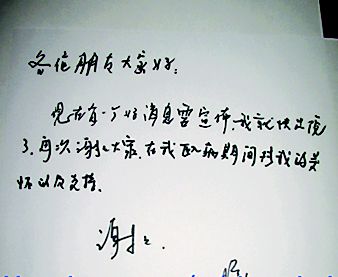 各位朋友大家好:
现在有一个好消息要宣布,我就快出院
了.再次谢谢大家,在我生病期间对我的关
怀以及支持.
谢谢.